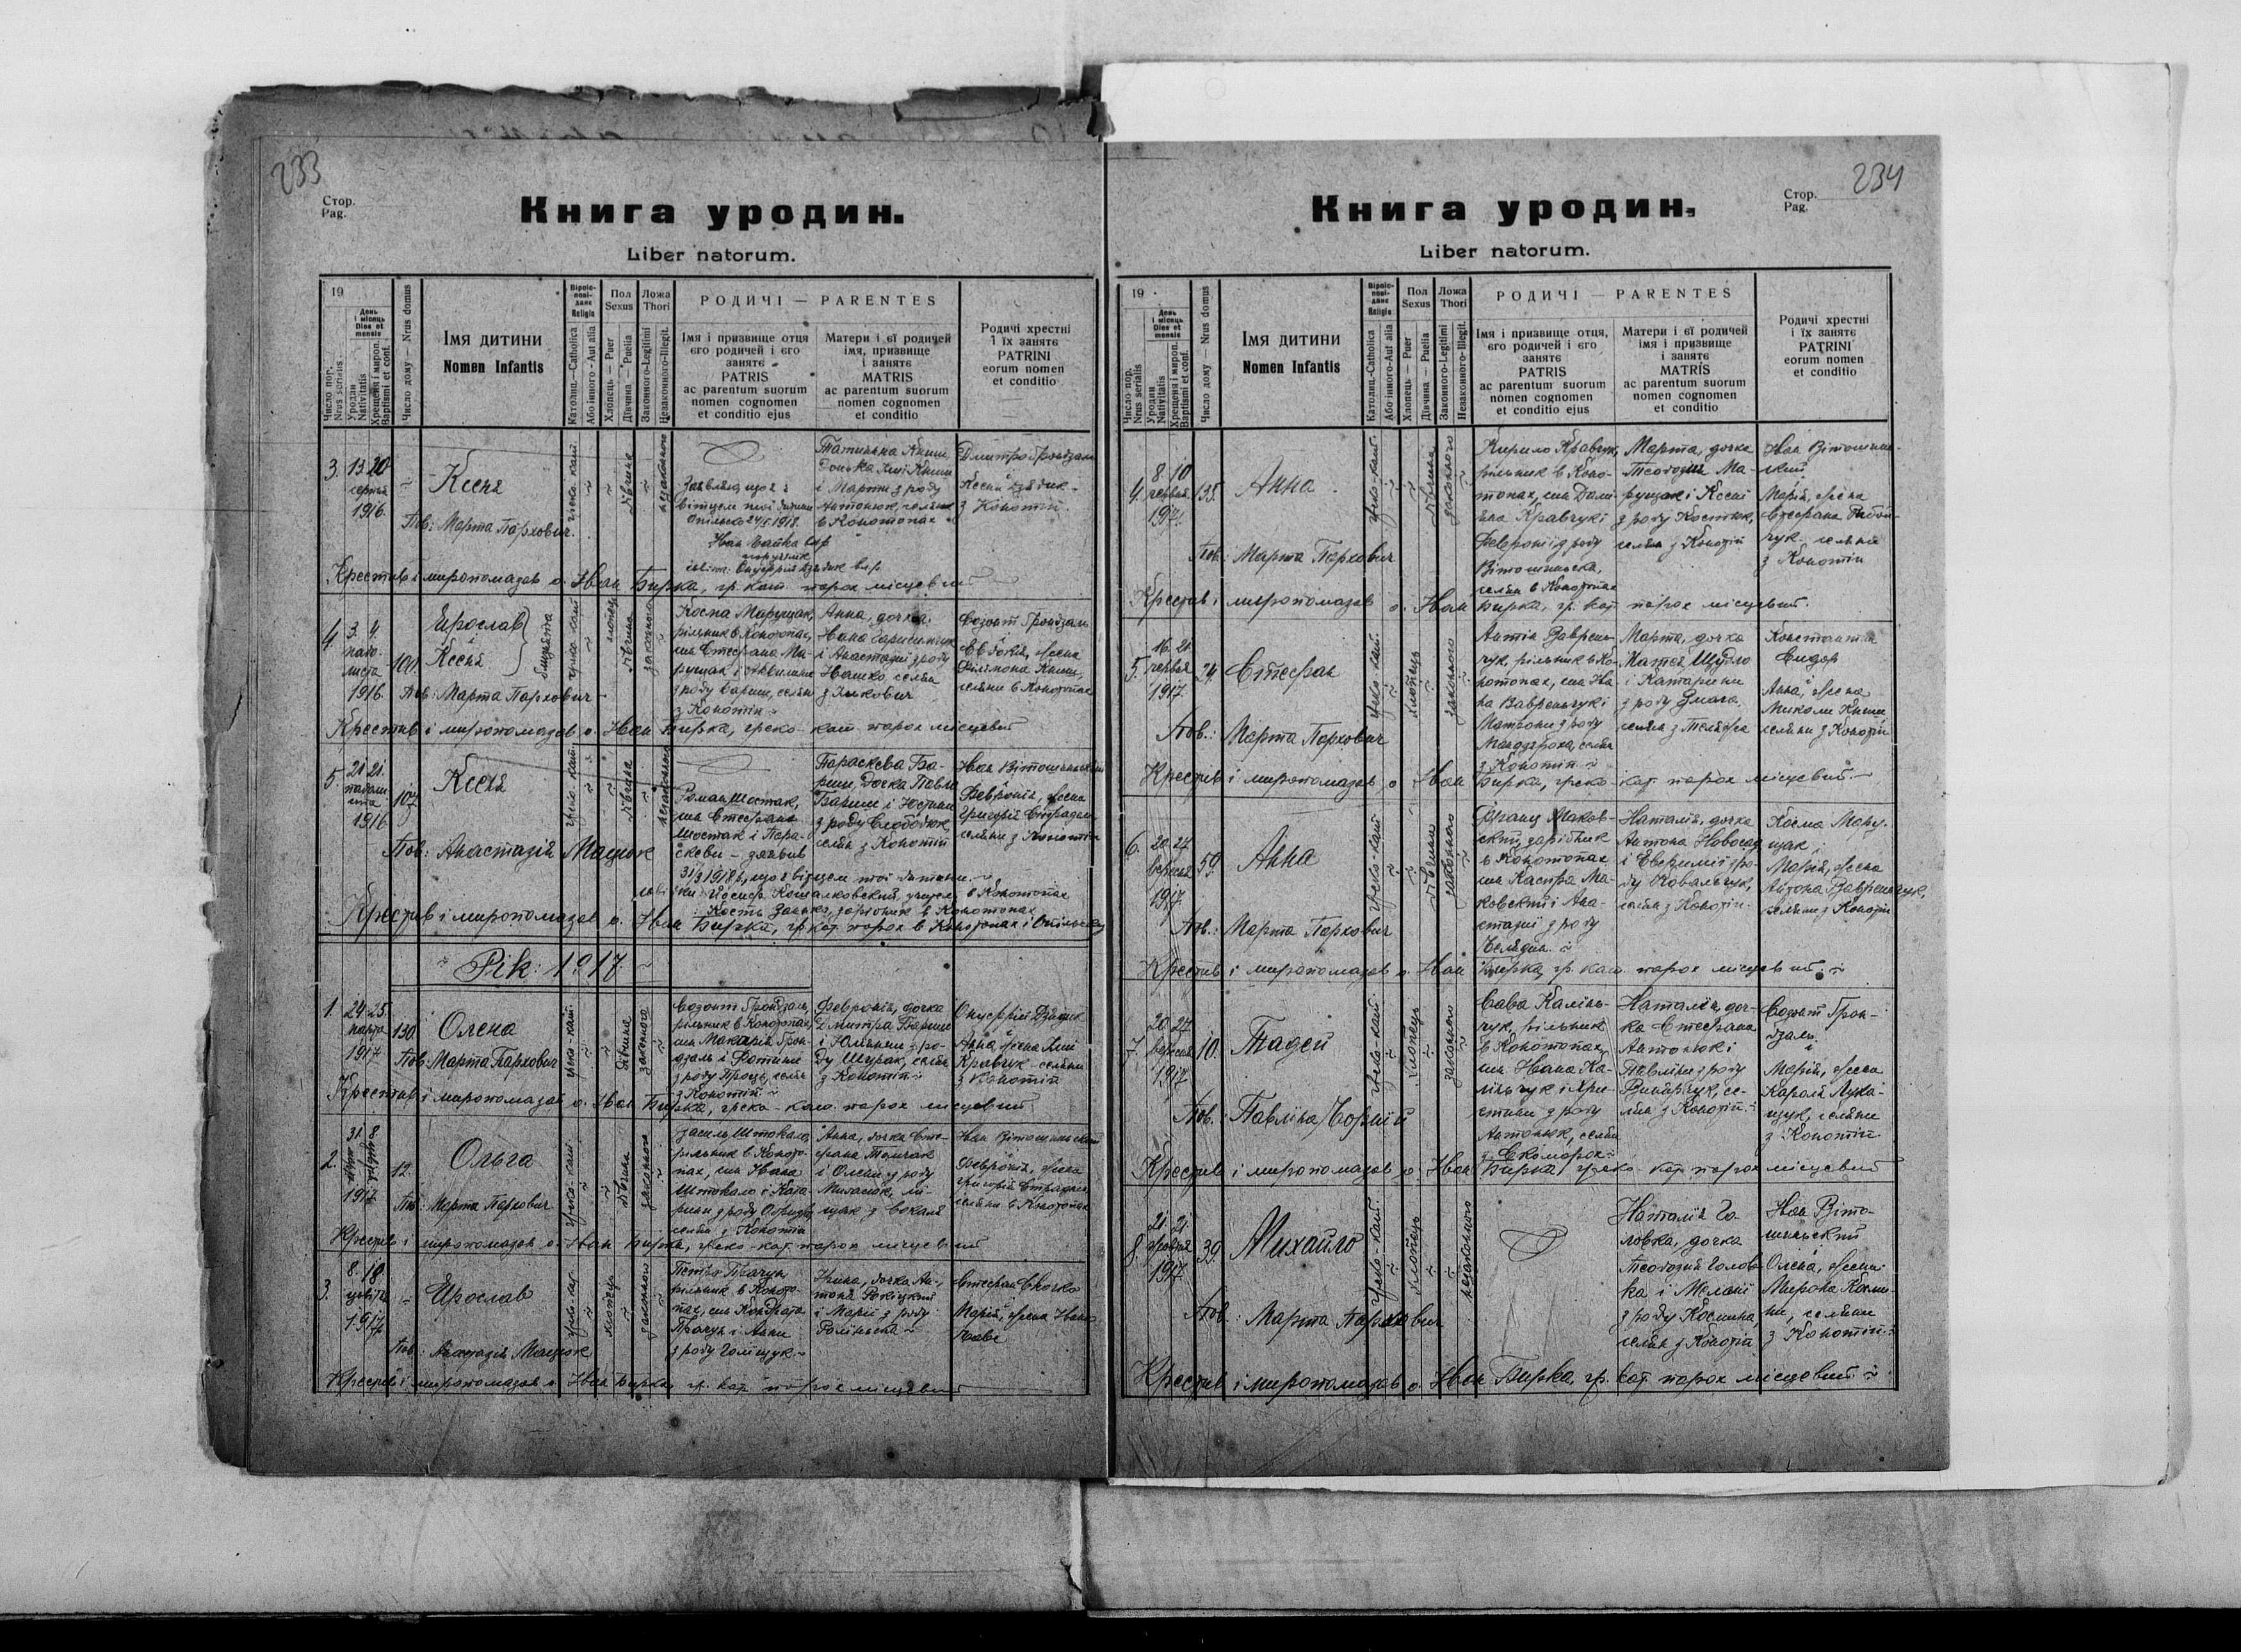 233
Стор.
Pag.
Книга уродин.
Liber natorum.
19
Число пор.
Nrus serialis
День і місяць
Dies et mensis
Уродин
Nativitatis
Хрещеня і мироп.
Baptismi et conf.
Число дому — Nrus domus
Імя дитини
Nomen Infantis
Religio
Католиц.—Catholica
Або инного-Aut alia
Пол
Sexus
Хлопець — Puer
Дівчина — Puella
Ложа
Thori
Законного-Legitimi
Незаконного-Illegit.
РОДИЧІ — PARENTES
Імя і призвище отця
єго родичей і єго
занятє
PATRIS
ac parentum suorum
nomen cognomen
et conditio ejus
Матери і єї родичей
імя, призвище
і занятє
MATRIS
ac parentum suorum
nomen cognomen
et conditio
Родичі хрестні
і їх занятє
PATRINI
eorum nomen
et conditio
3.
13 20
серпня
1916.
Ксеня
Пов: Марта Пархович.
греко-кат.
дівчина
незаконного
Заявляю, що є
вітцем
24/5 1918.
і Марти з роду
Антонюк, селяне
в Конотопах
Дмитро Гройдзаль
і
Ксеня Дзядик
з Конотіп.
Крестив і миропомазав о. Іван Бирка, гр. кат. парох місцевий
4.
3. 4.
падо-
листа
1916.
101.
Ярослав
Ксеня
близнята
Пов: Марта Пархович
хлопець
дівчина
законного
Косма Марущак,
рільник в Конотопах,
син Стефана Ма-
рущак і Аквилини
з роду Бариш, селян
з Конотіп
Анна, дочка
Івана
і Анастазії з роду
Івашко, селян
Созонт Гройдзаль
і
Евдокія, жена
Филімона Книш,
селяни в Конотопах
Крестив і миропомазав о. Іван Бирка, греко-кат. парох місцевий
5.
21. 21.
падоли-
ста
1916
107
Ксеня
Пов: Анастазія Мацюк
дівчина
незаконного
Роман Шостак,
син Стефана
Шостак і Пара-
скеви — заявив
31/3 1918, що є вітцем тої дитини.
Параскева Ба-
риш, дочка Павла
Бариш і Юстини
з роду Слободюк,
селян з Конотіп
Февронія, жена
Григорія
селяни з Конотіп
Крестив і миропомазав о. Іван Бирка, гр. кат. парох в Конотопах і Опільску
Рік: 1917
1.
24. 25.
марта
1917
130.
Олена
Пов Марта Пархович
греко-кат.
дівчина
законного
Созонт Гройдзаль,
рільник в Конотопах,
син Макарія Грой-
дзаль і Фотинії
з роду Троць, селян
з Конотіп
Февронія, дочка
Дмитра Бариш
і Юлиянни з ро-
ду Щурак, селян
з Конотіп
Онуфрій Дзядик
і
Анна, жена
Кравчук — селяни
з Конотіп
Крестив і миропомазав о. Іван Бирка, греко-кат. парох місцевий
2.
31. 8.
1917
12.
Ольга
Пов: Марта Пархович
дівчина
законного
рільник в Коното-
пах, син Івана
Штокало і Ката-
рини з роду
селян з Конотіп
Анна, дочка Сте-
фана
і Олени з роду
щан з Сокаля
Февронія, жена
Григорія
селяни в Конотопах
Крестив і миропомазав о. Іван Бирка, греко-кат. парох місцевий
3.
8. 18
цвітня
1917
Ярослав
Пов: Анастазія Мацюк
хлопець
законного
Петро Трачук
рільник в Коното-
пах, син Кондрата
Трачук і Анни
з роду Голіщук
дочка Ан-
тона
і Марії з роду
Стефан Скочко
Марія, жена Івана
Крестив і миропомазав о. Іван Бирка, гр. кат. парох місцевий
234
Стор.
Pag.
Книга уродин.
Liber natorum.
19
Число пор.
Nrus serialis
День і місяць
Dies et mensis
Уродин
Nativitatis
Хрещеня і мироп.
Baptismi et conf.
Число дому — Nrus domus
Імя дитини
Nomen Infantis
Religio
Католиц.—Catholica
Або инного-Aut alia
Пол
Sexus
Хлопець — Puer
Дівчина — Puella
Ложа
Thori
Законного-Legitimi
Незаконного-Illegit.
РОДИЧІ — PARENTES
Імя і призвище отця,
єго родичей і єго
занятє
PATRIS
ac parentum suorum
nomen cognomen
et conditio ejus
Матери і єї родичей
імя і призвище
і занятє
MATRIS
ac parentum suorum
nomen cognomen
et conditio
Родичі хрестні
і їх занятє
PATRINI
eorum nomen
et conditio
4.
8 10
червня
1917.
135.
Анна
Пов: Марта Пархович
греко-кат.
дівчина
законного
Кирило Кравчук,
рільник в Коно-
топах, син Дамі-
яна Кравчук і
Февронії з роду
Вітошинська,
селян в Конотопах
Марта, дочка
Теодозія Ма-
рущак і Ксені
з роду Костюк,
селян з Конотіп
Іван Вітошин-
ский
і
Марія, жена
Стефана
чук селяни
з Конотіп
Крестив і миропомазав о. Іван Бирка, гр. кат. парох місцевий.
5.
16. 21.
червня
1917.
24.
Стефан
Пов.: Марта Пархович
греко-кат.
хлопець
законного
Антін Вавринь-
чук, рільник в Ко-
нотопах, син Іва-
на Вавриньчук і
Матрони з роду
Мандзірока, селян
з Конотіп
Марта, дочка
Матея Щудло
і Катарини
з роду Змага,
селян з Теляжа
Константин
Сидор
і
Анна, жена
Миколи Книш
селяни з Конотіп
Крестив і миропомазав о. Іван Бирка, греко-кат. парох місцевий
6.
20. 27
вересня
1917
59.
Анна
Пов.: Марта Пархович
греко-кат
дівчина
законного
Франц Маков-
ский, зарібник
в Конотопах
син Каспра Ма-
ковский і Ана-
стазиї з роду
Челядин
Наталія, дочка
Антона Новосад
і Евфимії з ро-
ду Ковальчук,
селян з Конотіп
Косма Мару-
щак і
Марія, жена
Антона Вавриньчук,
селяни з Конотіп
Крестив і миропомазав о. Іван Бирка, гр. кат. парох місцевий
7.
20. 27
вересня
1917
10.
Тадей
Пов.: Павлина Чорній
греко-кат.
хлопець
законного
Сава Калінь-
чук, рільник
в Конотопах,
син Івана Ка-
ліньчук і Хри-
стини з роду
Антонюк, селян
з Скоморох
Наталія, доч-
ка Стефана
Антонюк і
Павлини з роду
Винярчук, се-
лян з Конотіп
Созонт Грой-
дзаль
і
Марія, жена
Кароля Лука-
щук, селяни
з Конотіп
Крестив і миропомазав о. Іван Бирка, греко-кат. парох місцевий
8.
21. 21.
грудня
1917
39.
Михайло
Пов: Марта Пархович
греко-кат.
хлопець
незаконного
Наталія Го-
ловка, дочка
Теодозія Голов-
ка і Меланії
з роду Космина,
селян з Конотіп
Іван Віто-
шиньский
Олена, жена
Мирона Косми-
на, селяни
з Конотіп
Крестив і миропомазав о. Іван Бирка, гр. кат. парох місцевий